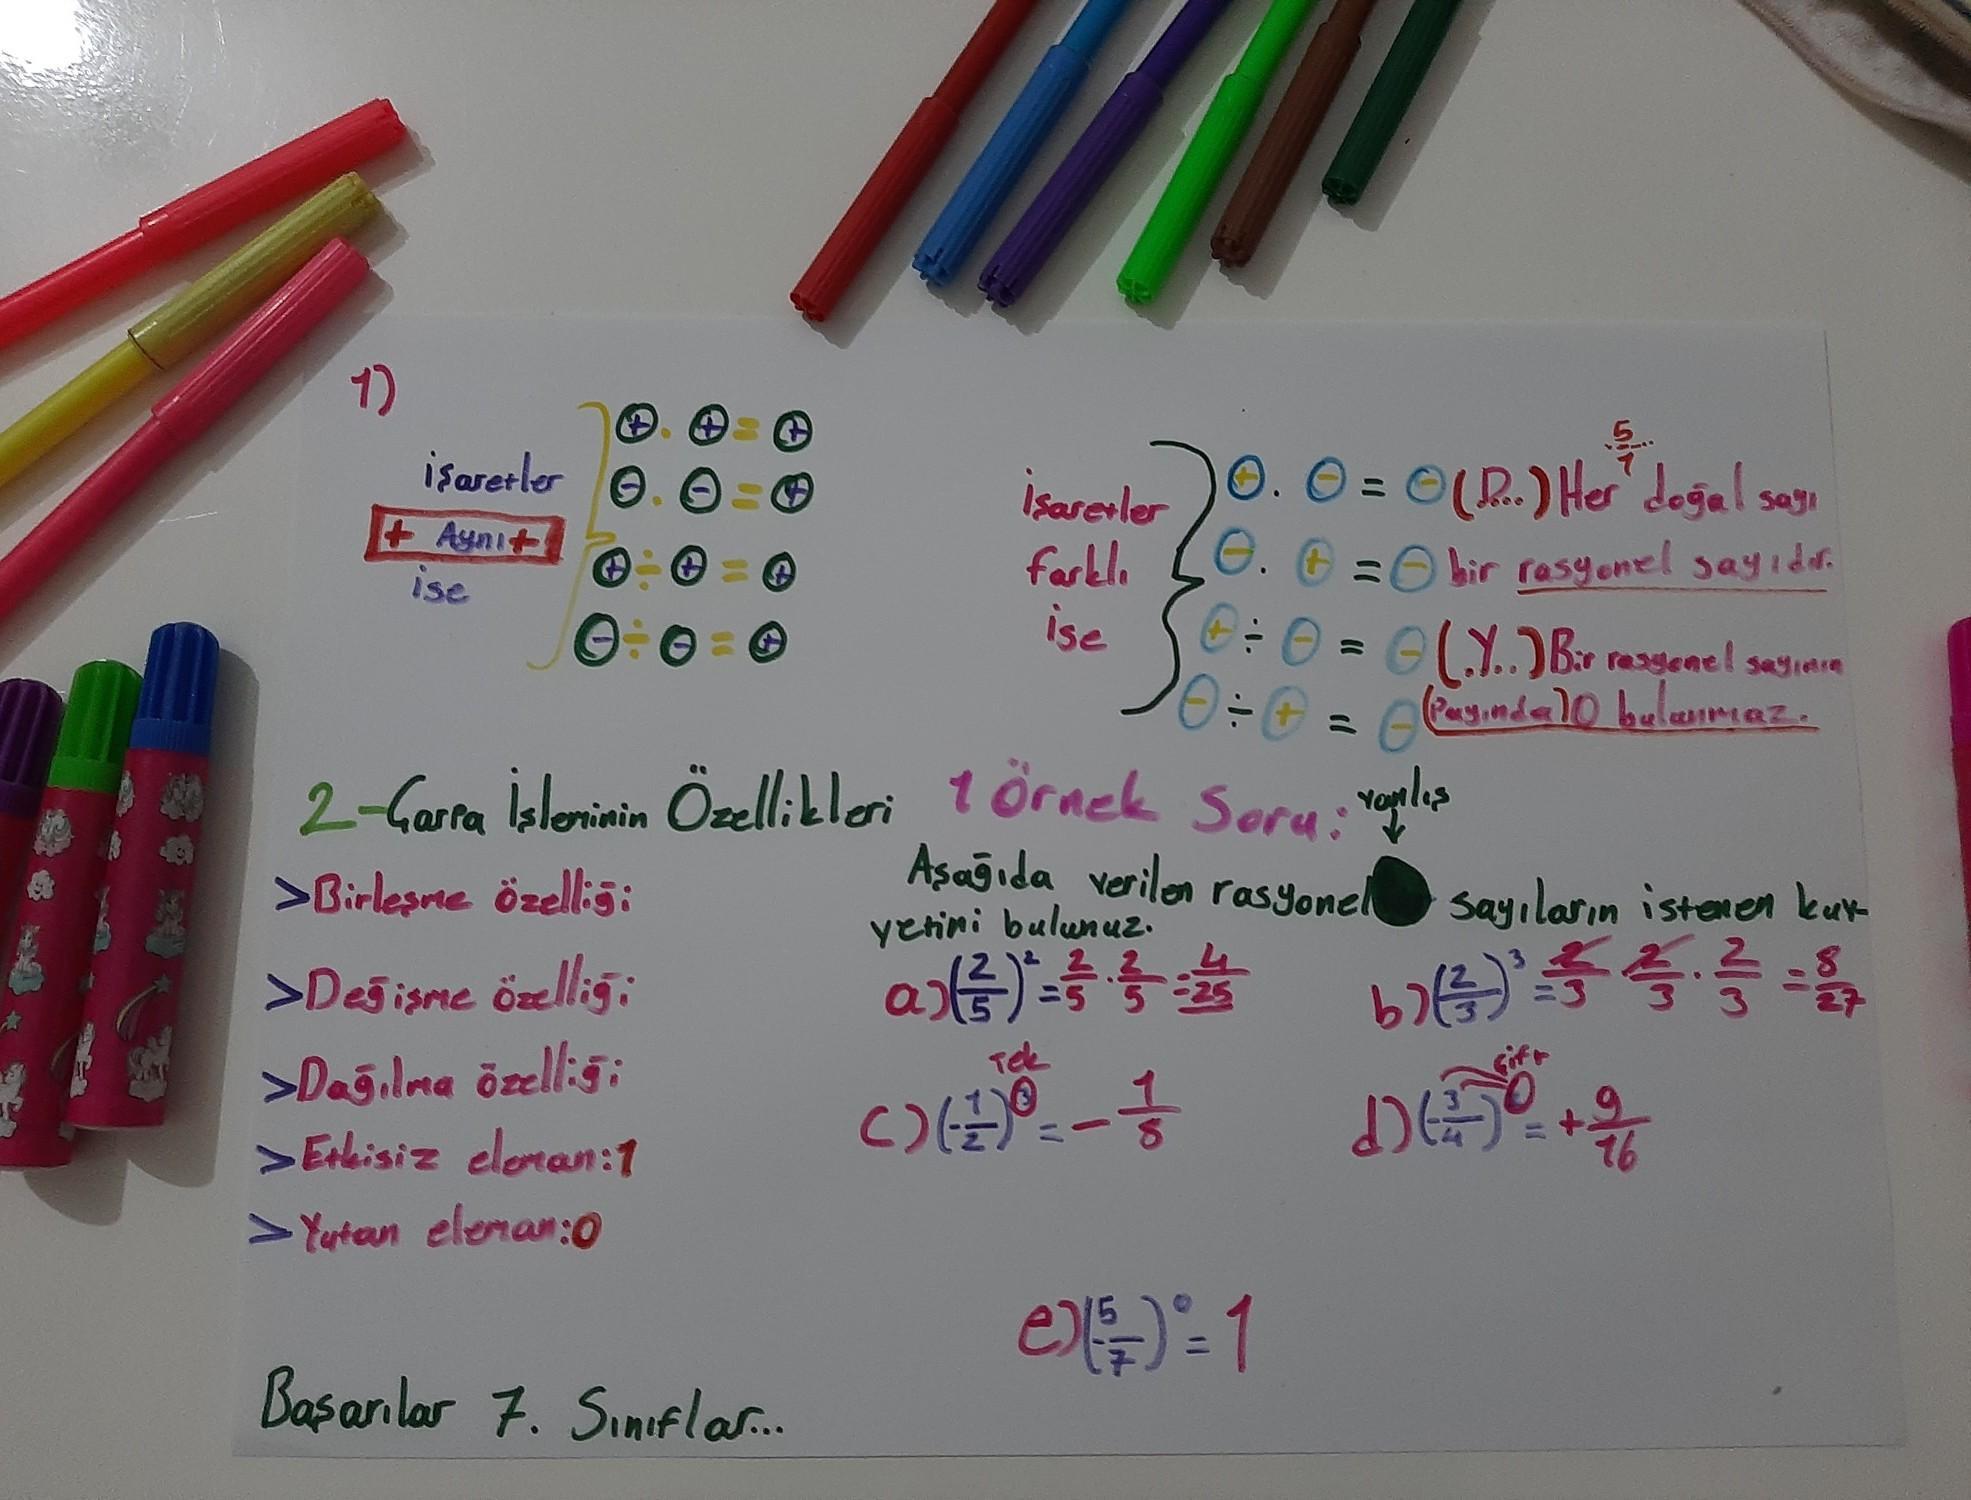 1)
işaretler
+ Aynı +
ise
+ . + = +
- . - = +
+ ÷ + = +
- ÷ - = +
işaretler
farklı
ise
+ . - = - (D...) Her doğal sayı
5/1
- . + = - bir rasyonel sayıdır.
+ ÷ - = - (.Y..) Bir rasyonel sayının
- ÷ + = - (Payında) 0 bulunmaz.
2-Çarpa İşleminin Özellikleri
>Birleşme özelliği
>Değişme özelliği
>Dağılma özelliği
>Etkisiz eleman:1
>Yutan eleman:0
1 Örnek Soru:
yanlış
Aşağıda verilen rasyonel sayıların istenen kuv-
vetini bulunuz.
a) (2/5)² = 2/5 . 2/5 = 4/25
b) (2/3)³ = 2/3 2/3 . 2/3 = 8/27
Tek
c) (-1/2)³ = - 1/8
çift
d) (-3/4) = + 9/16
e) (-5/7)⁰ = 1
Başarılar 7. Sınıflar...